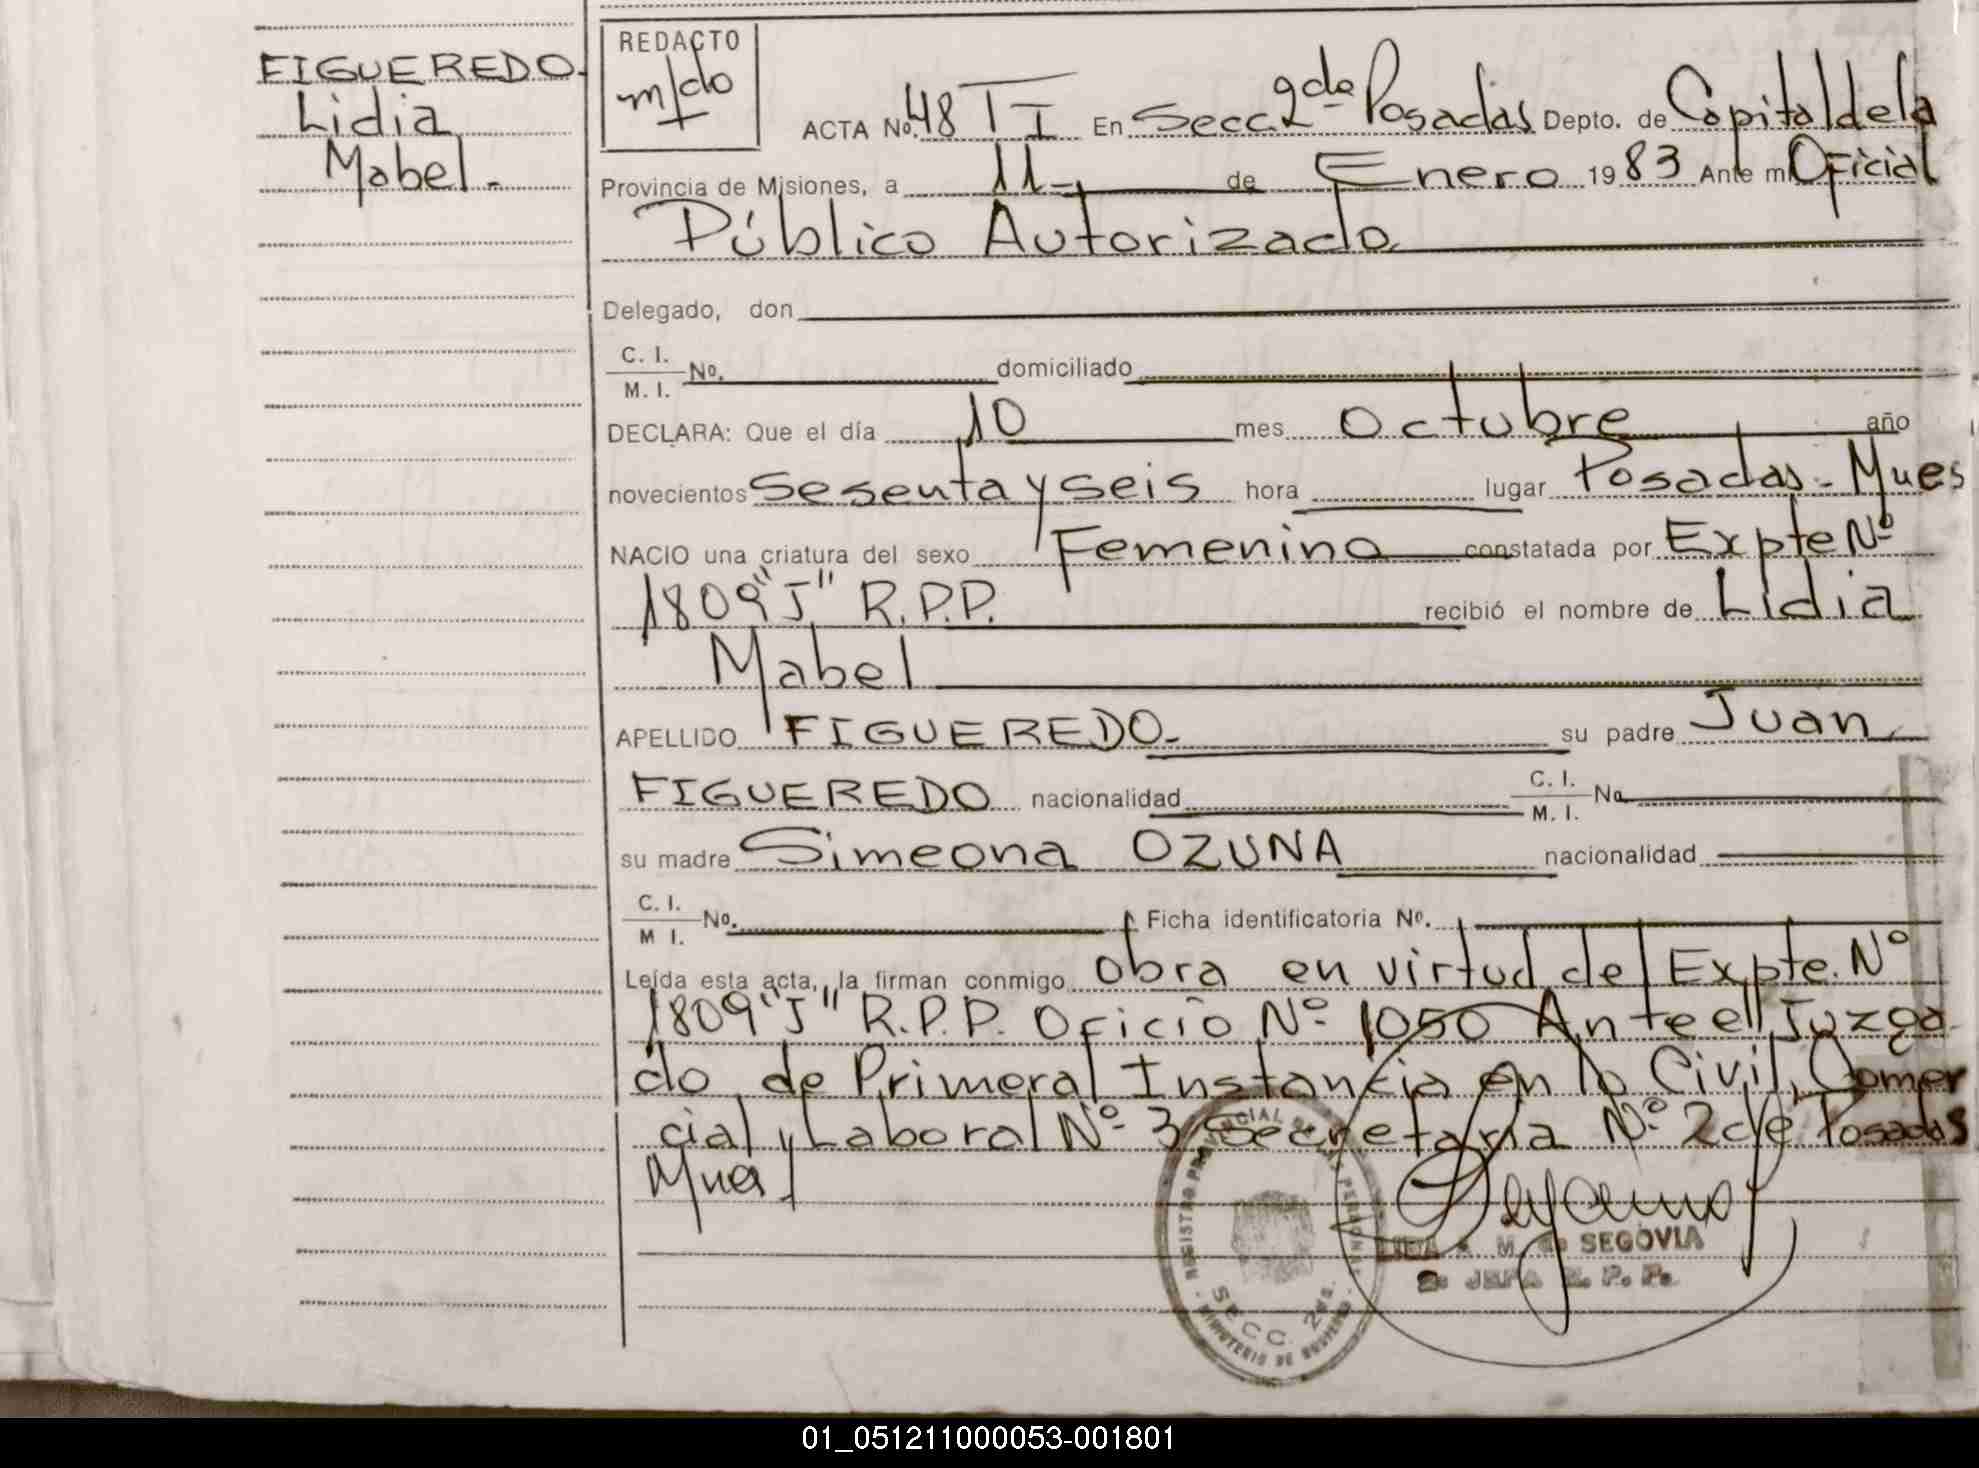 FIGUEREDO.
Lidia
Mabel.-
REDACTO
ACTA No. 48 T I En Secc. 2da Posadas Depto. de Capital de la
Provincia de Misiones, a 11- de Enero 1983 Ante mi Oficial
Público Autorizado
Delegado, don
C. I.
M. I. No. domiciliado
DECLARA: Que el día 10 mes octubre año
novecientos Sesenta y seis hora lugar Posadas - Mnes
NACIO una criatura del sexo Femenino constatada por Expte Nº
1809 "J" R.P.P. recibió el nombre de Lidia
Mabel
APELLIDO FIGUEREDO.- su padre Juan
FIGUEREDO nacionalidad C. I. M. I. No.
su madre Simeona OZUNA nacionalidad
C. I.
M I. No. Ficha identificatoria Nº.
Leída esta acta, la firman conmigo obra en virtud del Expte. Nº
1809 "J" R.P.P. Oficio Nº 1050 Ante el Juzga
do de Primera Instancia en lo Civil, Comer
cial y Laboral Nº 3 Secretaria Nº 2 de Posadas
Mnes
REGISTRO PROVINCIAL DE LAS PERSONAS
SECC. 2da.
MINISTERIO DE GOBIERNO
M. de SEGOVIA
2a JEFA R. P. P.
01_051211000053-001801